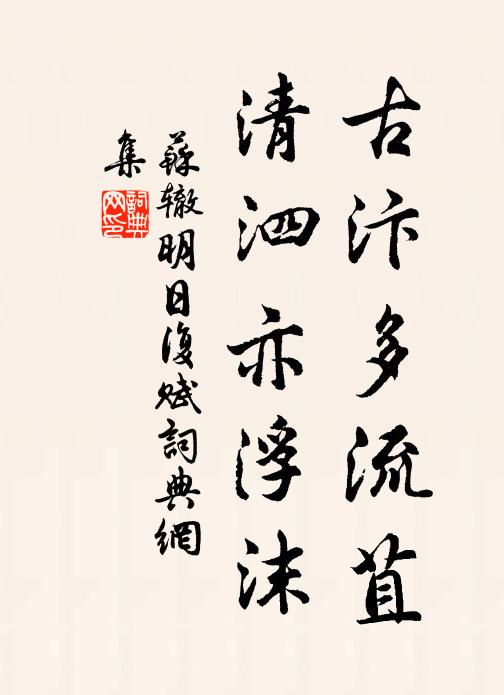 古汴多流苴
清泗亦浮沫
蘇轍明日復賦詞典網
集
詞典
网印